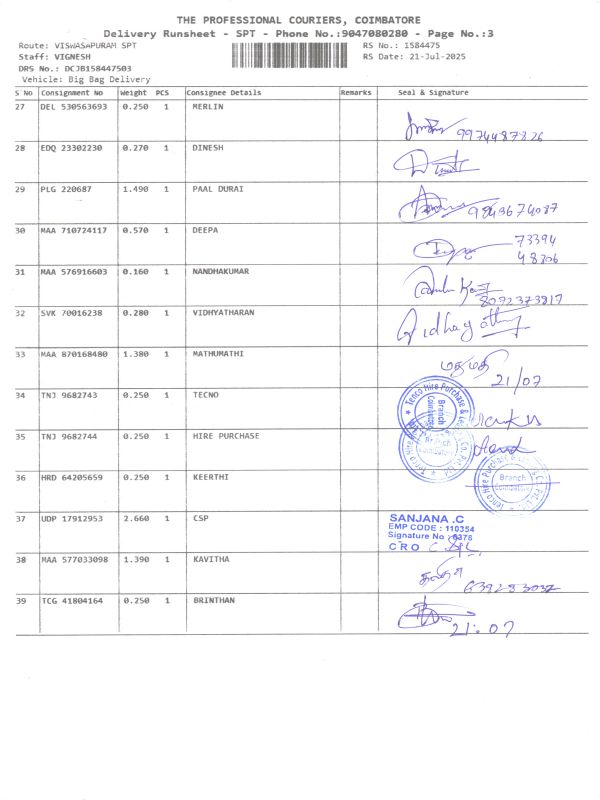 THE PROFESSIONAL COURIERS, COIMBATORE
Delivery Runsheet - SPT - Phone No.:9047080280 - Page No.:3
Route: VISWASAPURAM SPT RS No.: 1584475
Staff: VIGNESH RS Date: 21-Jul-2025
DRS No.: DCJB158447503
Vehicle: Big Bag Delivery
S No Consignment No Weight PCS Consignee Details Remarks Seal & Signature
27 DEL 530563693 0.250 1 MERLIN
9974487826
28 EDQ 23302230 0.270 1 DINESH
29 PLG 220687 1.490 1 PAAL DURAI
9843674087
30 MAA 710724117 0.570 1 DEEPA
73394
48306
31 MAA 576916603 0.160 1 NANDHAKUMAR
8072373817
32 SVK 70016238 0.280 1 VIDHYATHARAN
Vidhayathny
33 MAA 870168480 1.380 1 MATHUMATHI
மதுமதி
21/07
34 TNJ 9682743 0.250 1 TECNO
Tenco Hire Purchase & Lea
Branch
Coimbatore
35 TNJ 9682744 0.250 1 HIRE PURCHASE
Branch
Coimbatore
36 HRD 64205659 0.250 1 KEERTHI
Branch
Coimbatore
37 UDP 17912953 2.660 1 CSP
SANJANA .C
EMP CODE : 110354
Signature No : 6378
C R O
38 MAA 577033098 1.390 1 KAVITHA
639283032
39 TCG 41804164 0.250 1 BRINTHAN
21.07